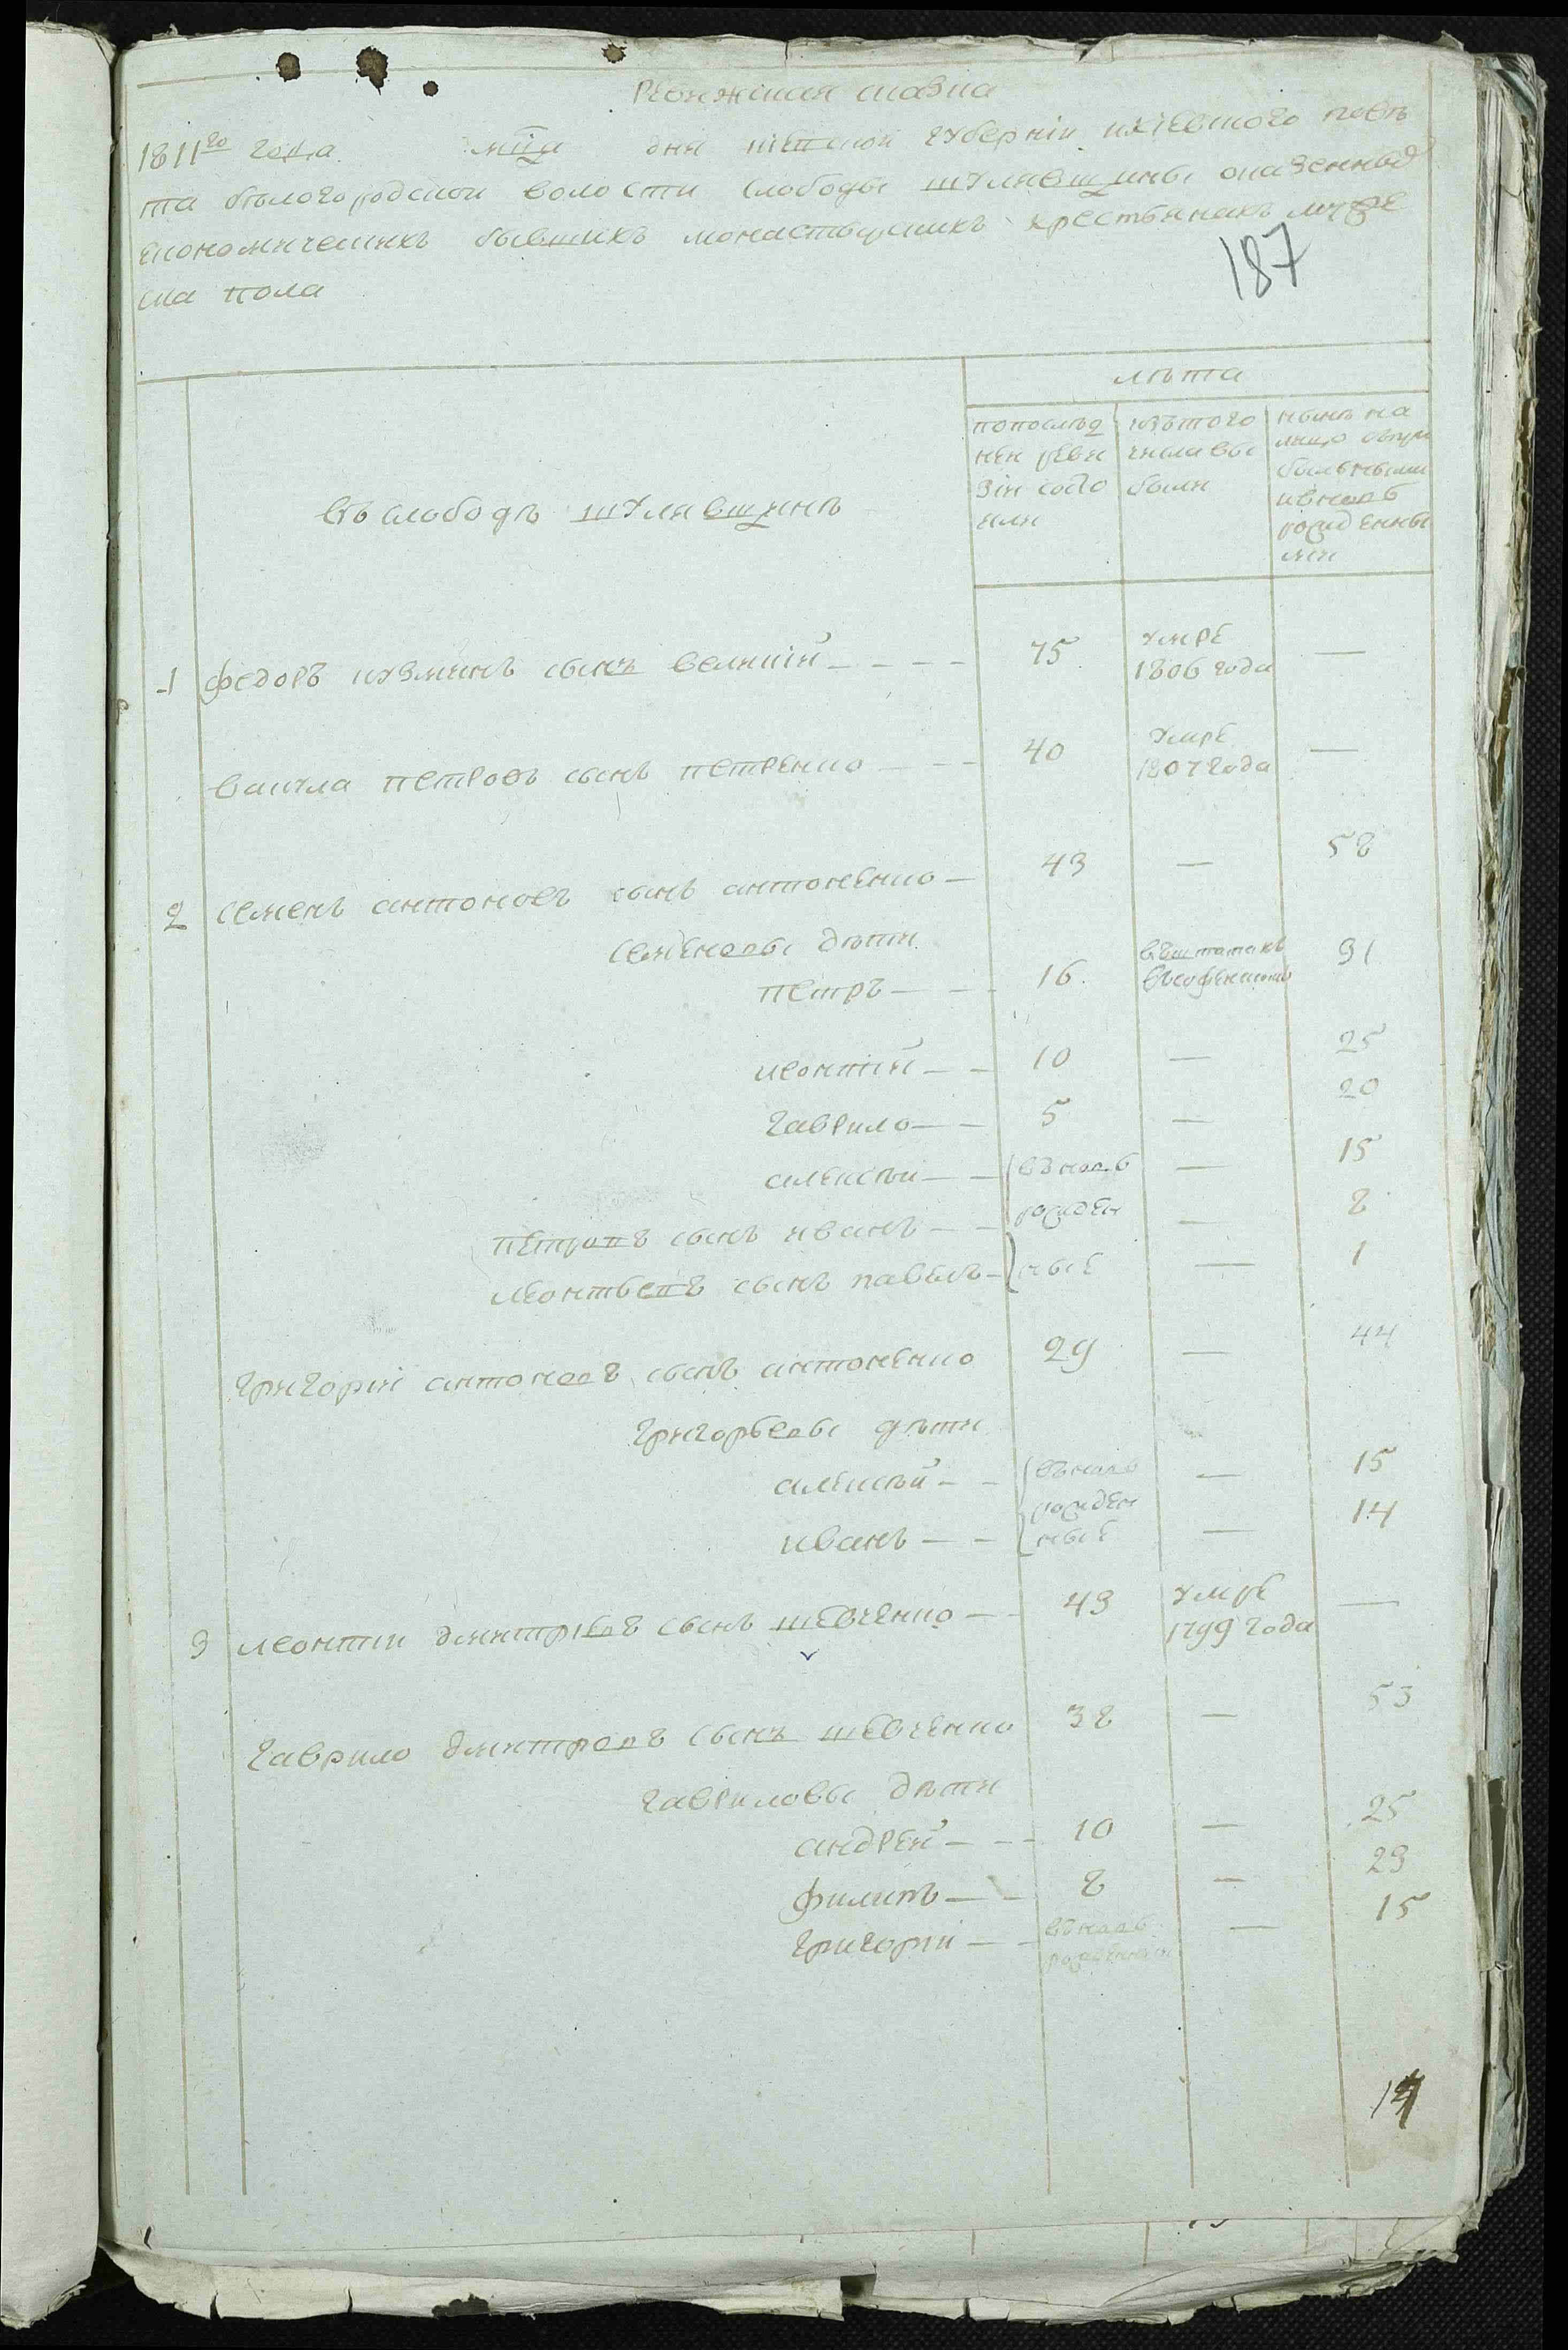 Ревижская сказка
1811го года мца дня киевской губерніи киевского повѣ
та бѣлогородской волости слободы шулявщины оказенныхъ
економическихъ бывшихъ монастырскихъ крестьянахъ муже
ска пола
187
лѣта
Въ слободѣ шулявщинѣ
попослѣд
ней реви
зіи состо
яли
изътого
числа вы
были
нынѣ на
лицо
рожденны
ми
1 федоръ кузминъ сынъ великій 75 умре 1806 года —
вакула петровъ сынъ петренко 40 умре 1807 года —
2 семенъ антоновъ сынъ антоненко 43 — 58
семеновы дѣти
петръ 16 31
леонтій 10 — 25
гаврило 5 — 20
алексѣй вновь — 15
петровъ сынъ иванъ рожден — 8
леонтьевъ сынъ павелъ ные — 1
григорій антоновъ сынъ антоненко 29 — 44
григорьевы дѣти
алексѣй вновь рожден — 15
иванъ ные — 14
3 леонтій дмитріевъ сынъ шевченко 43 умре 1799 года —
гаврило дмитровъ сынъ шевченко 38 — 53
гавриловы дѣти
андрей 10 — 25
филипъ 8 — 23
григорій вновь рожденный — 15